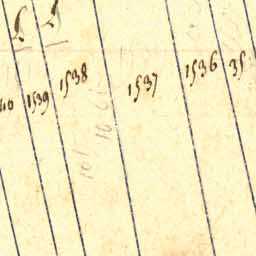 40 1539 1538 1537 1536 35